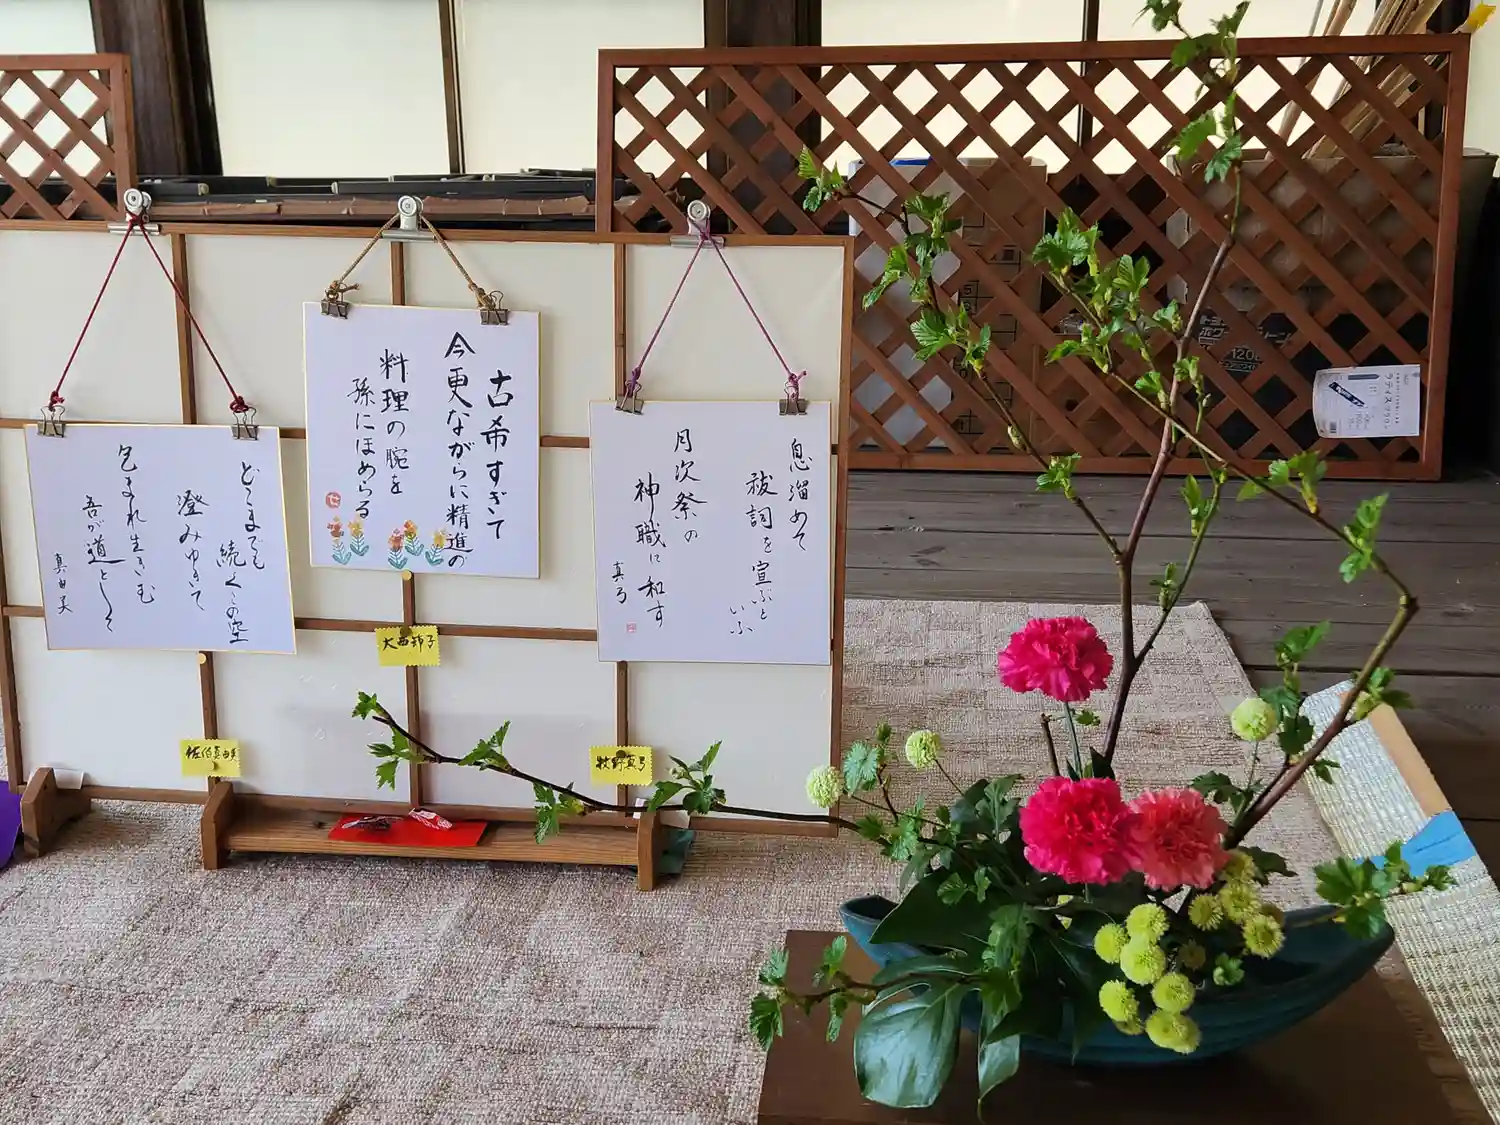 息溜めて
祓詞を宣ぶと
いふ
月次祭の
神職に和す
真弓
古希すぎて
今更ながらに精進の
料理の腕を
孫にほめらる
どこまでも
続くこの空
澄みゆきて
包まれ生きむ
吾が道として
真由美
佐伯真由美
牧野真弓
120